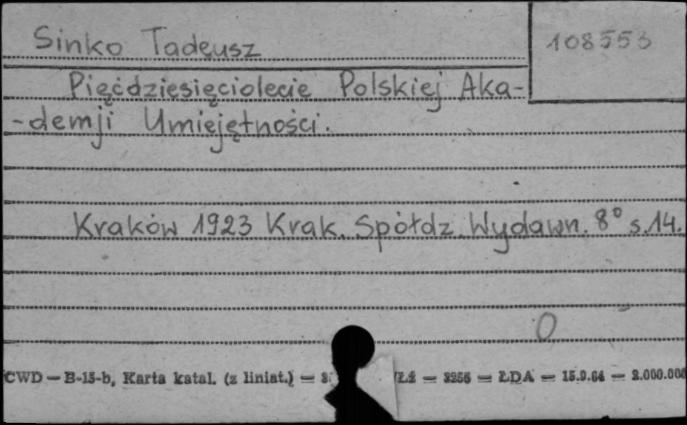 Sinko Tadeusz
108553
Pięćdziesięciolecie Polskiej Aka-
-demji Umiejętności.
Kraków 1923 Krak. Spółdz. Wydawn. 8° s. 14.
0
CWD — B-15-b, Karta katal. (z liniat.) — — 3256 — ŁDA — 15.9.64 — 2.000.000